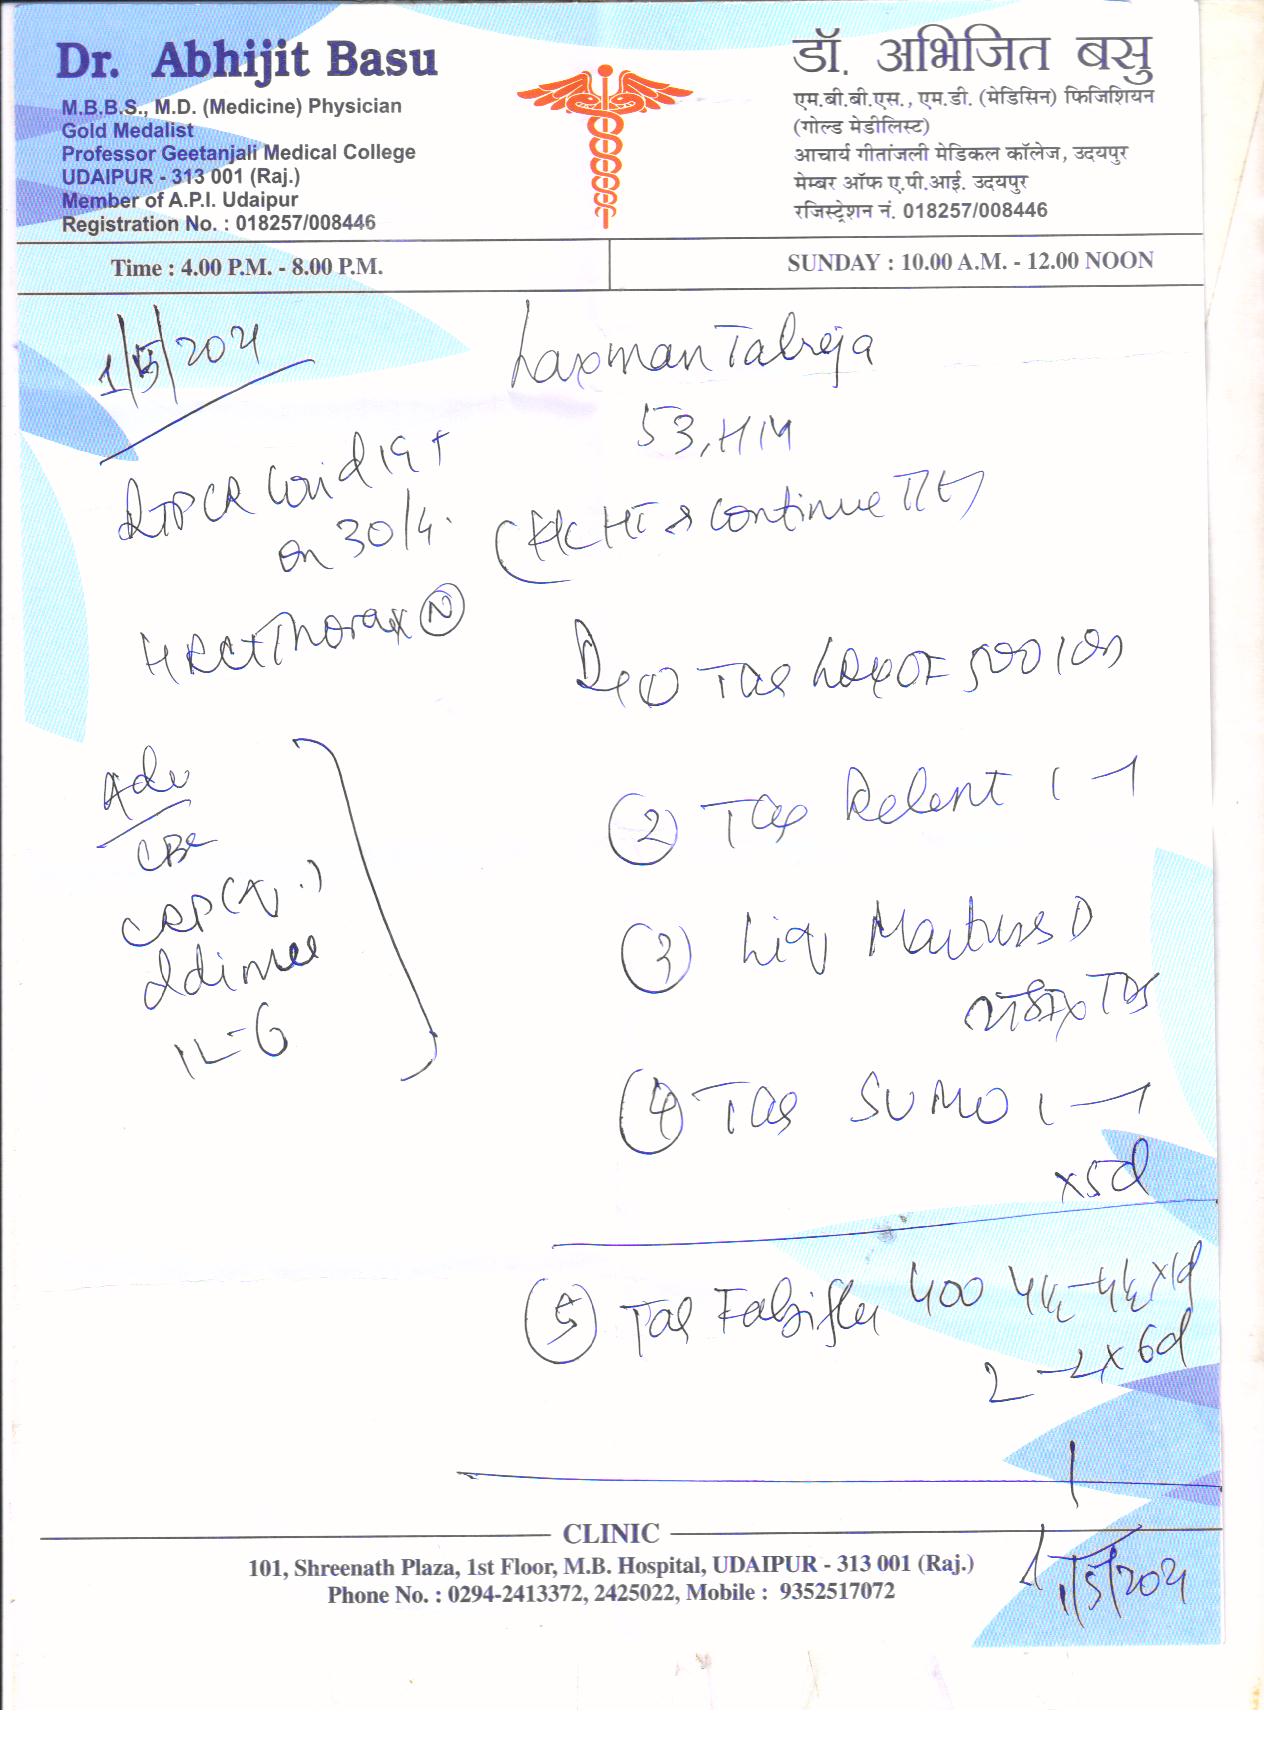 Dr. Abhijit Basu
M.B.B.S., M.D. (Medicine) Physician
Gold Medalist
Professor Geetanjali Medical College
UDAIPUR - 313 001 (Raj.)
Member of A.P.I. Udaipur
Registration No. : 018257/008446
डॉ. अभिजित बसु
एम.बी.बी.एस., एम.डी. (मेडिसिन) फिजिशियन
(गोल्ड मेडीलिस्ट)
आचार्य गीतांजली मेडिकल कॉलेज, उदयपुर
मेम्बर ऑफ ए.पी.आई. उदयपुर
रजिस्ट्रेशन नं. 018257/008446
Time : 4.00 P.M. - 8.00 P.M.
SUNDAY : 10.00 A.M. - 12.00 NOON
1/5/2021
Laxman Talreja
53, HM
RTPCR Covid 19 +
on 30/4.
HRCT Thorax (N)
HT continue
Adv
CBC
CRP
Ddimer
IL-6
① Tab 500 1 OD
② Tab Relent 1 - 1
③ Liq D
TDS
④ Tab SUMO 1 - 1
x5d
⑤ Tab Fabiflu 400 x1d
2 - 2 x 6d
1/5/2021
CLINIC
101, Shreenath Plaza, 1st Floor, M.B. Hospital, UDAIPUR - 313 001 (Raj.)
Phone No. : 0294-2413372, 2425022, Mobile : 9352517072